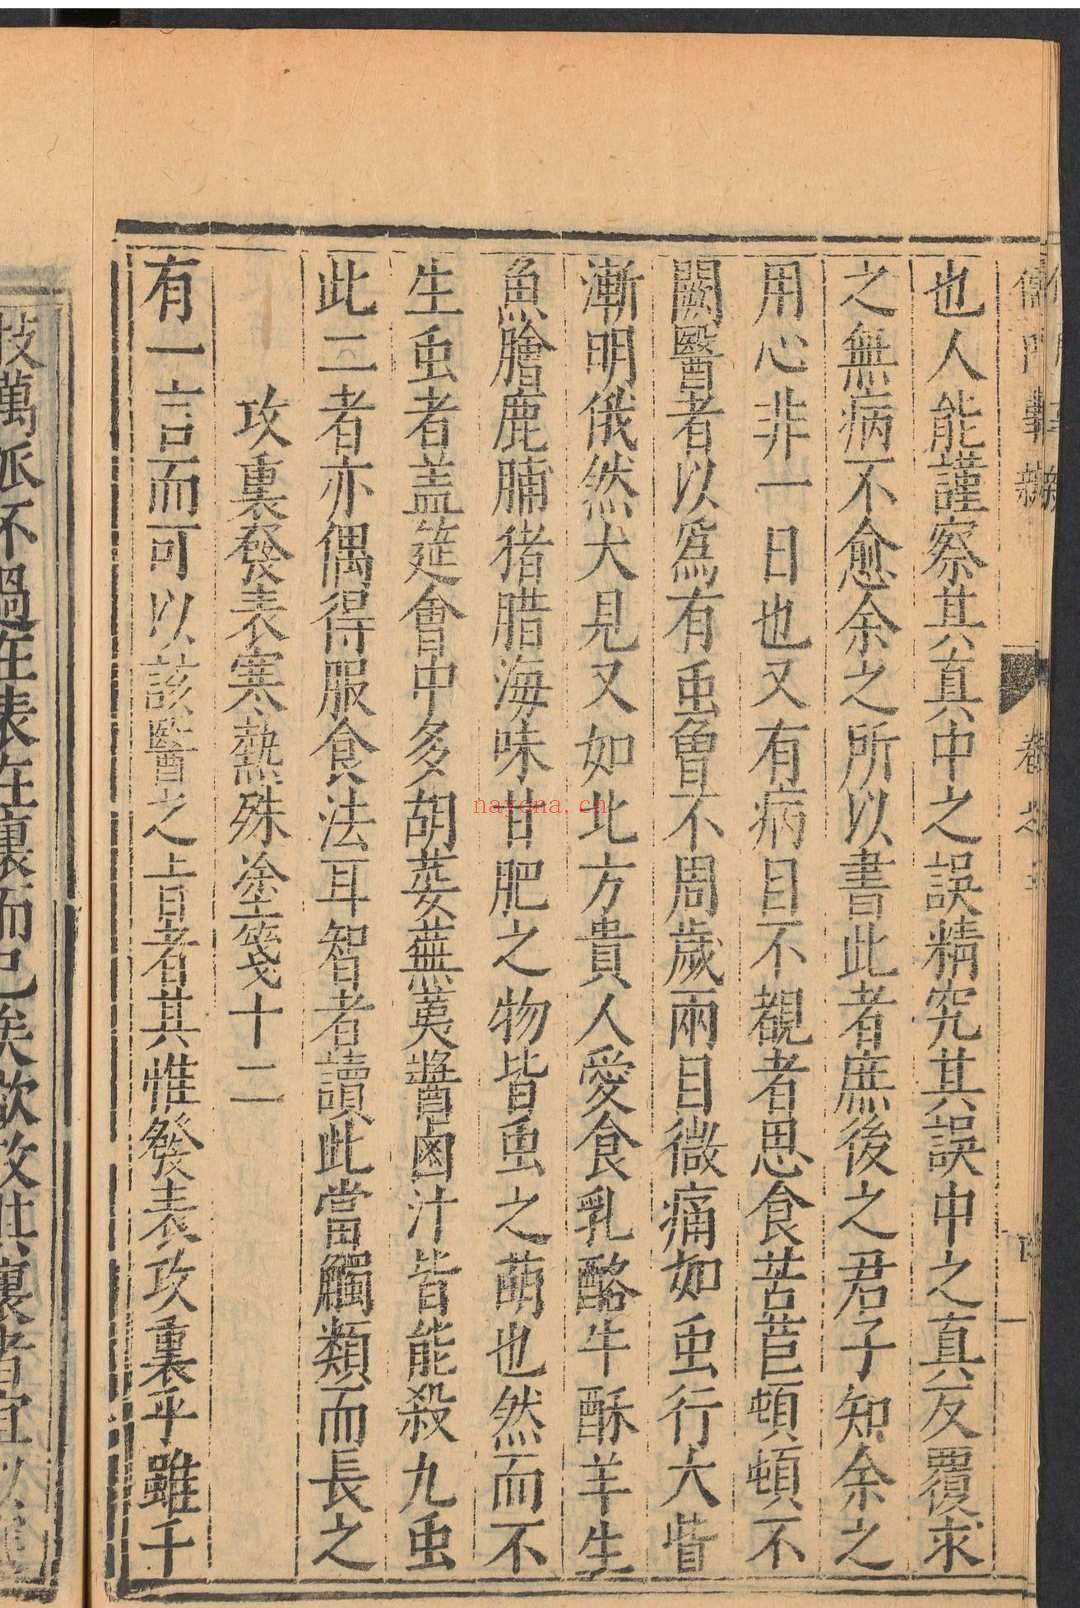 儒門事親
卷之三
也人能謹察其真中之誤精究其誤中之真反覆求
之無病不愈余之所以書此者庶後之君子知余之
用心非一日也又有病目不覩者思食苦苣頓頓不
闕醫者以爲有虫曾不周歲兩目微痛如虫行大眥
漸明俄然大見又如北方貴人愛食乳酪牛酥羊生
魚膾鹿脯猪腊海味甘肥之物皆虫之萌也然而不
生虫者盖筵會中多胡荽蕪荑醬卤汁皆能殺九虫
此二者亦偶得服食法耳智者讀此當觸類而長之
攻裏發表寒熱殊塗箋十二
有一言而可以該醫之旨者其惟發表攻裏乎雖千
枝萬派不過在表在裏而已矣欲攻其裏者宜以
nayona.cn